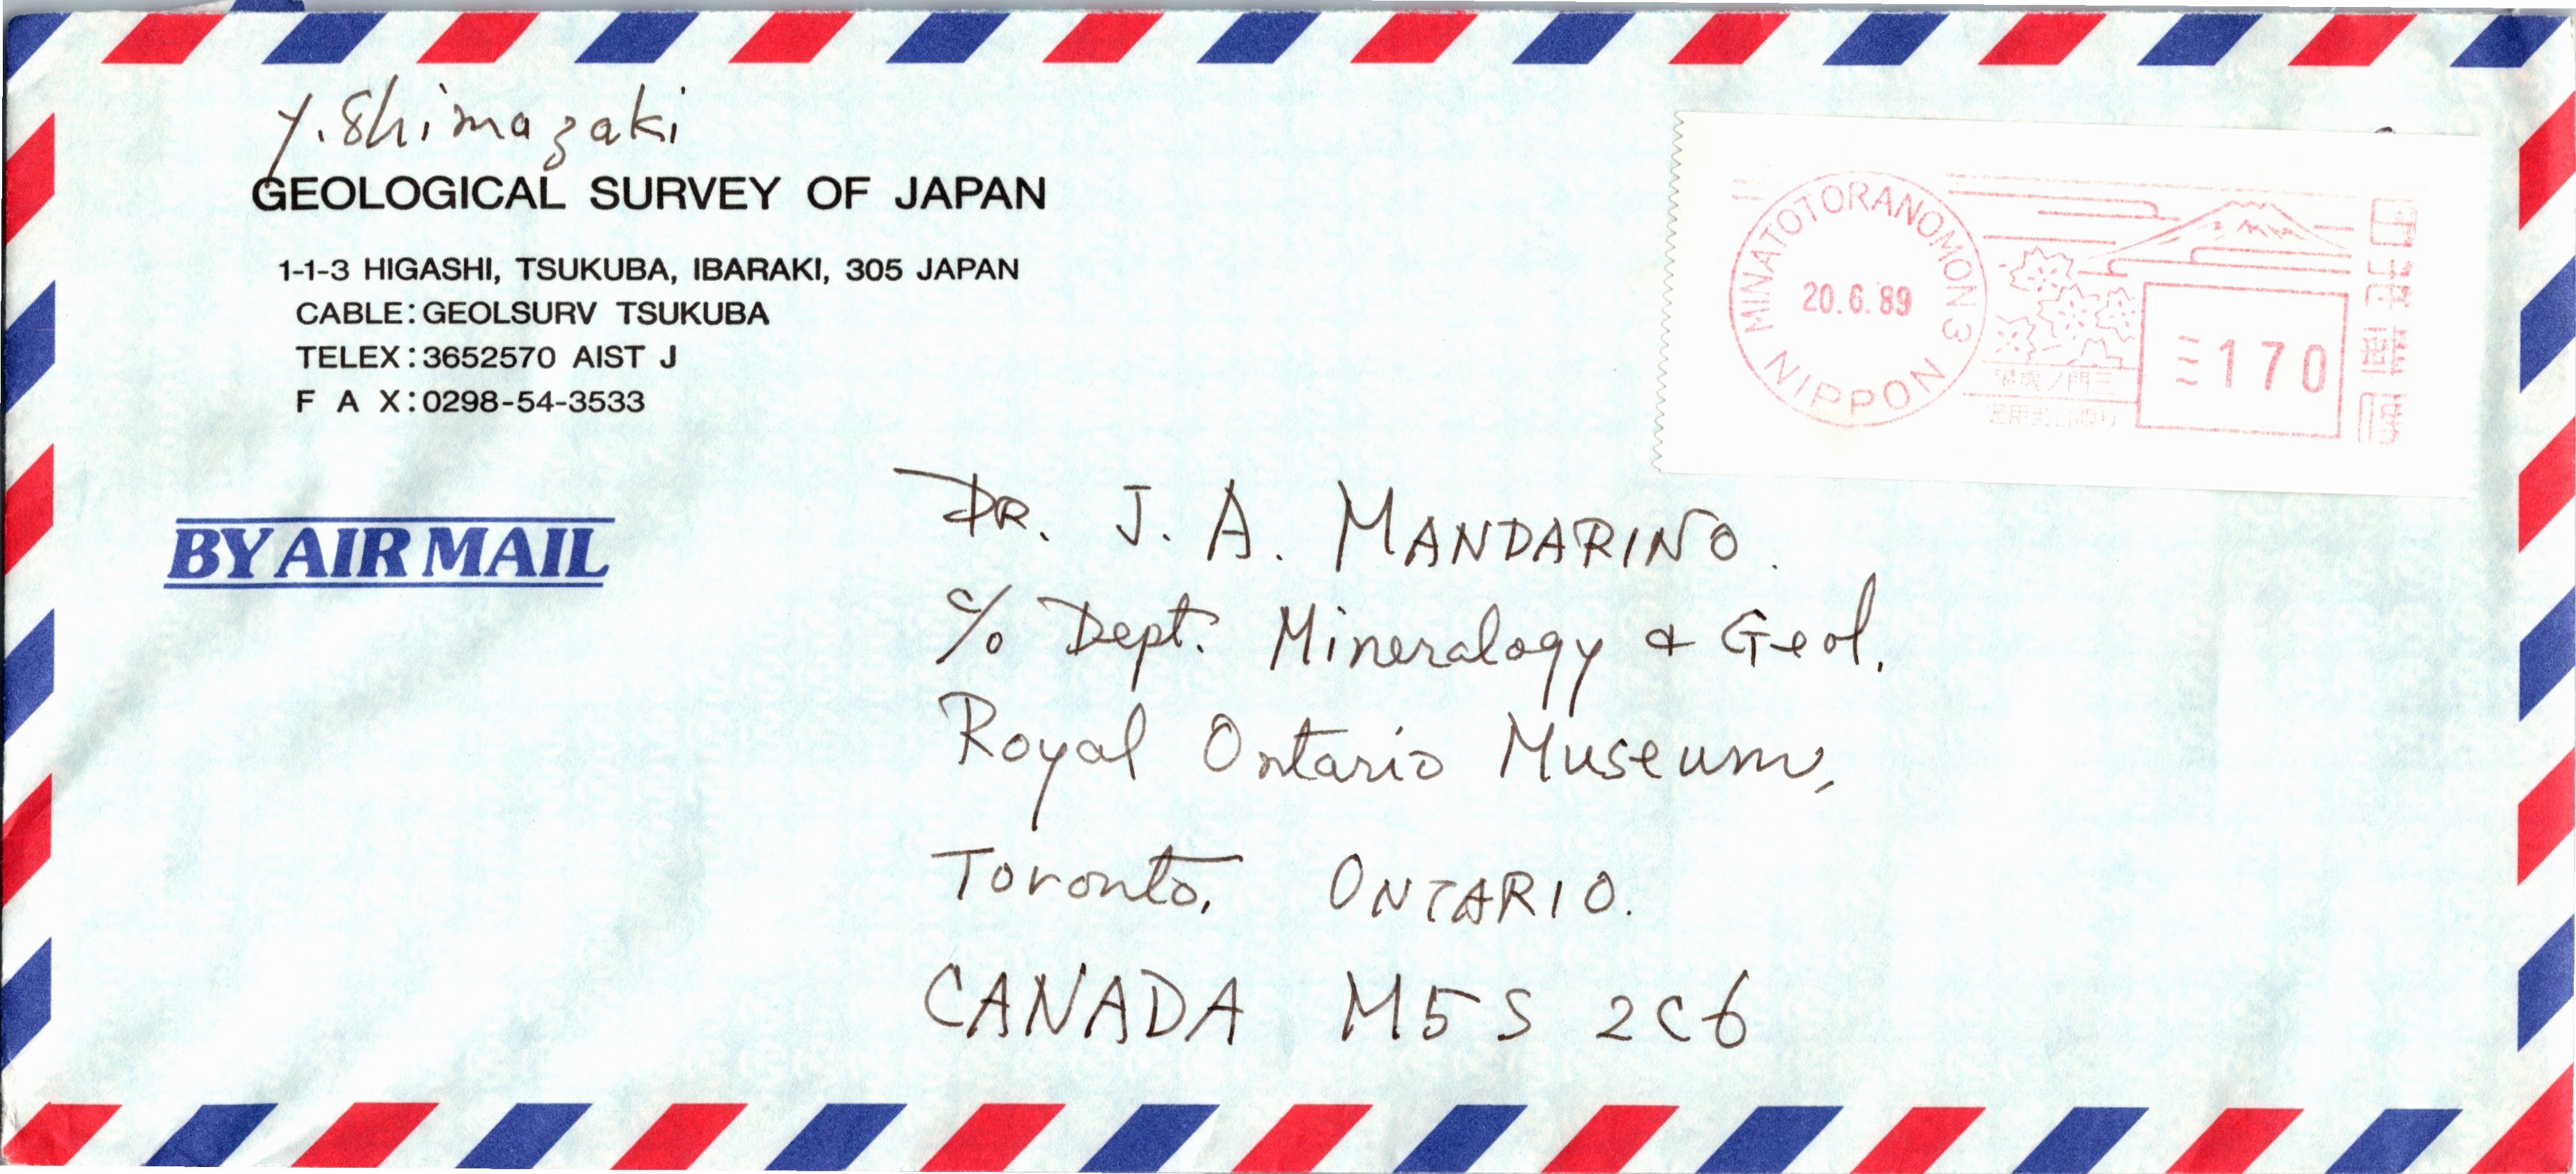 Y. Shimazaki
GEOLOGICAL SURVEY OF JAPAN
1-1-3 HIGASHI, TSUKUBA, IBARAKI, 305 JAPAN
CABLE: GEOLSURV TSUKUBA
TELEX: 3652570 AIST J
F A X: 0298-54-3533
MINATOTORANOMON 3
NIPPON
20.6.89
170
日本郵便
BY AIR MAIL
DR. J. A. MANDARINO.
c/o Dept. Mineralogy & Geol.
Royal Ontario Museum,
Toronto, ONTARIO.
CANADA M5S 2C6